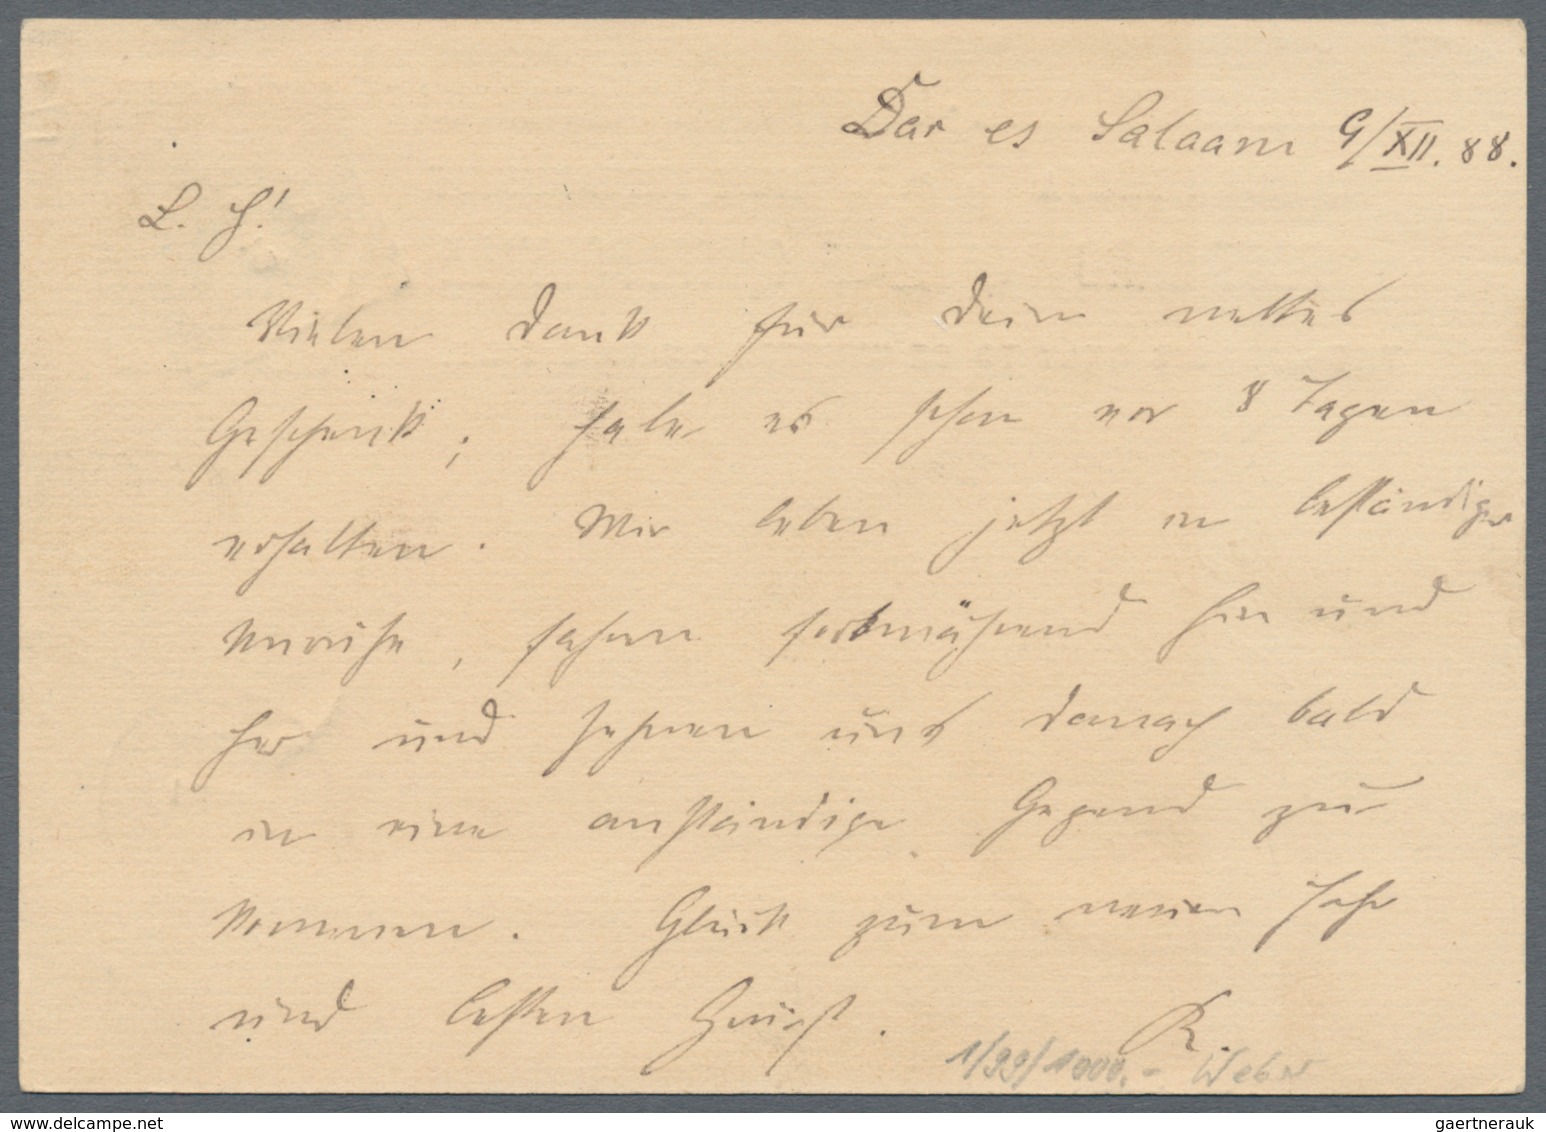 Dar es Salaam 9/XII. 88.
L. H!
Vielen Dank für Dein nettes
Geschenk, habe es schon vor 8 Tagen
erhalten. Wir leben jetzt in beständiger
Unruhe, fahren fortwährend hin und
her und sehnen uns danach bald
in eine anständige Gegend zu
kommen. Glück zum neuen Jahr
und besten Gruß.
R.
1/99/1000.- Weber
www.delcampe.net
gaertnerauk